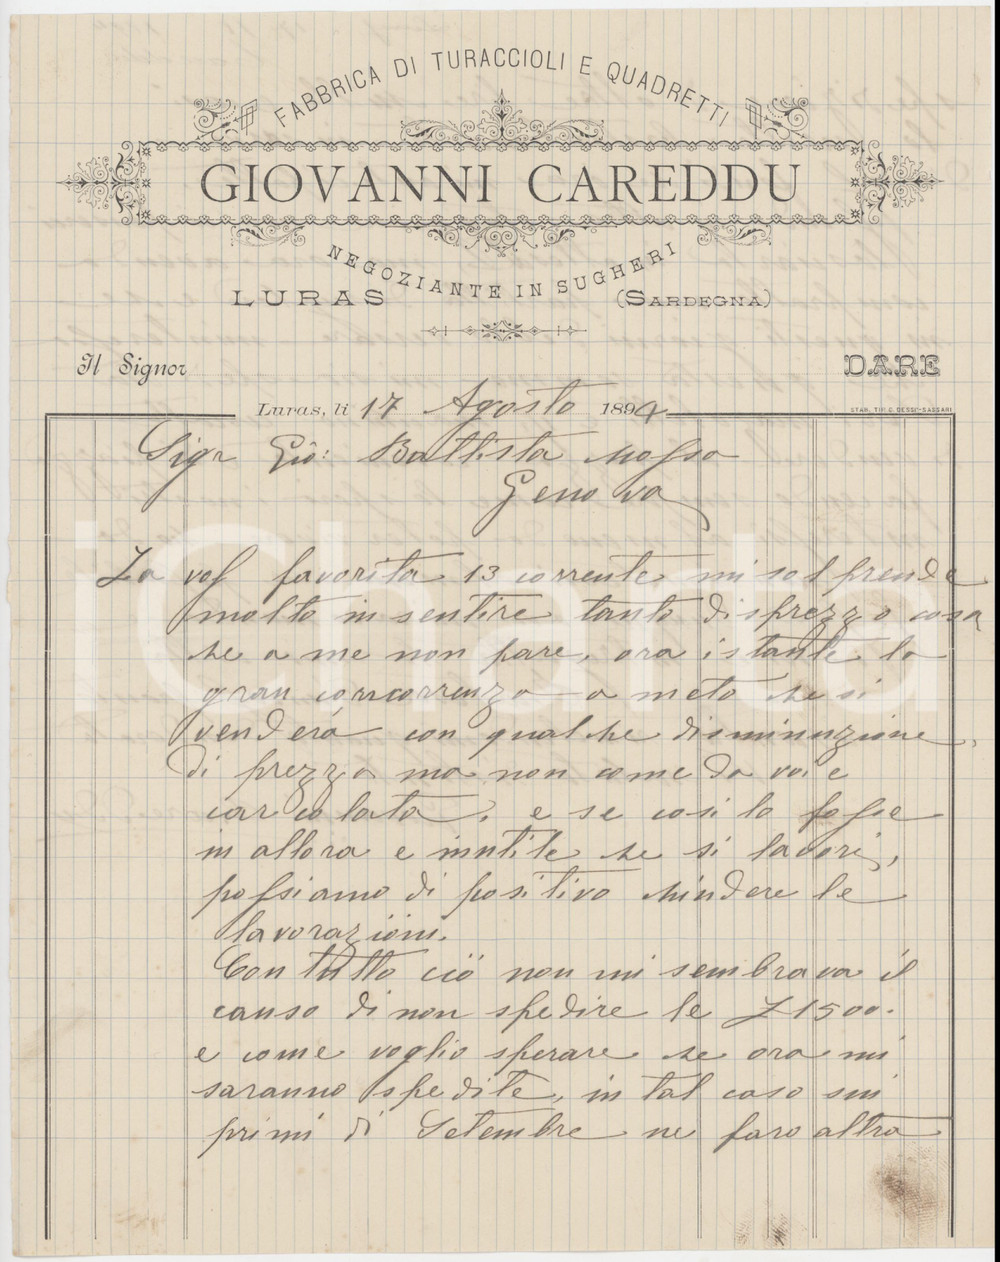 FABBRICA DI TURACCIOLI E QUADRETTI
GIOVANNI CAREDDU
NEGOZIANTE IN SUGHERI
LURAS (SARDEGNA)
Il Signor DARE
Luras, li 17 Agosto 1894
STAB. TIP. G. DESSI'-SASSARI
Sigr Gio: Battista Mosso
Genova
La vos favorita 13 corrente mi sorprende
molto in sentire tanto disprezzo cosa
che a me non pare, ora istante la
gran concorrenza a meto che si
venderá con qualche diminuzione,
di prezzo ma non come da voi e
carcolata, e se cosi lo fosse
in allora e inutile che si lavori,
possiamo di positivo chiudere le
lavorazioni.
Con tutto ciò non mi sembrava il
causo di non spedire le £ 1500.
e come voglio sperare che ora mi
saranno spedite, in tal caso sui
primi di Setembre ne faro altra
iCharta